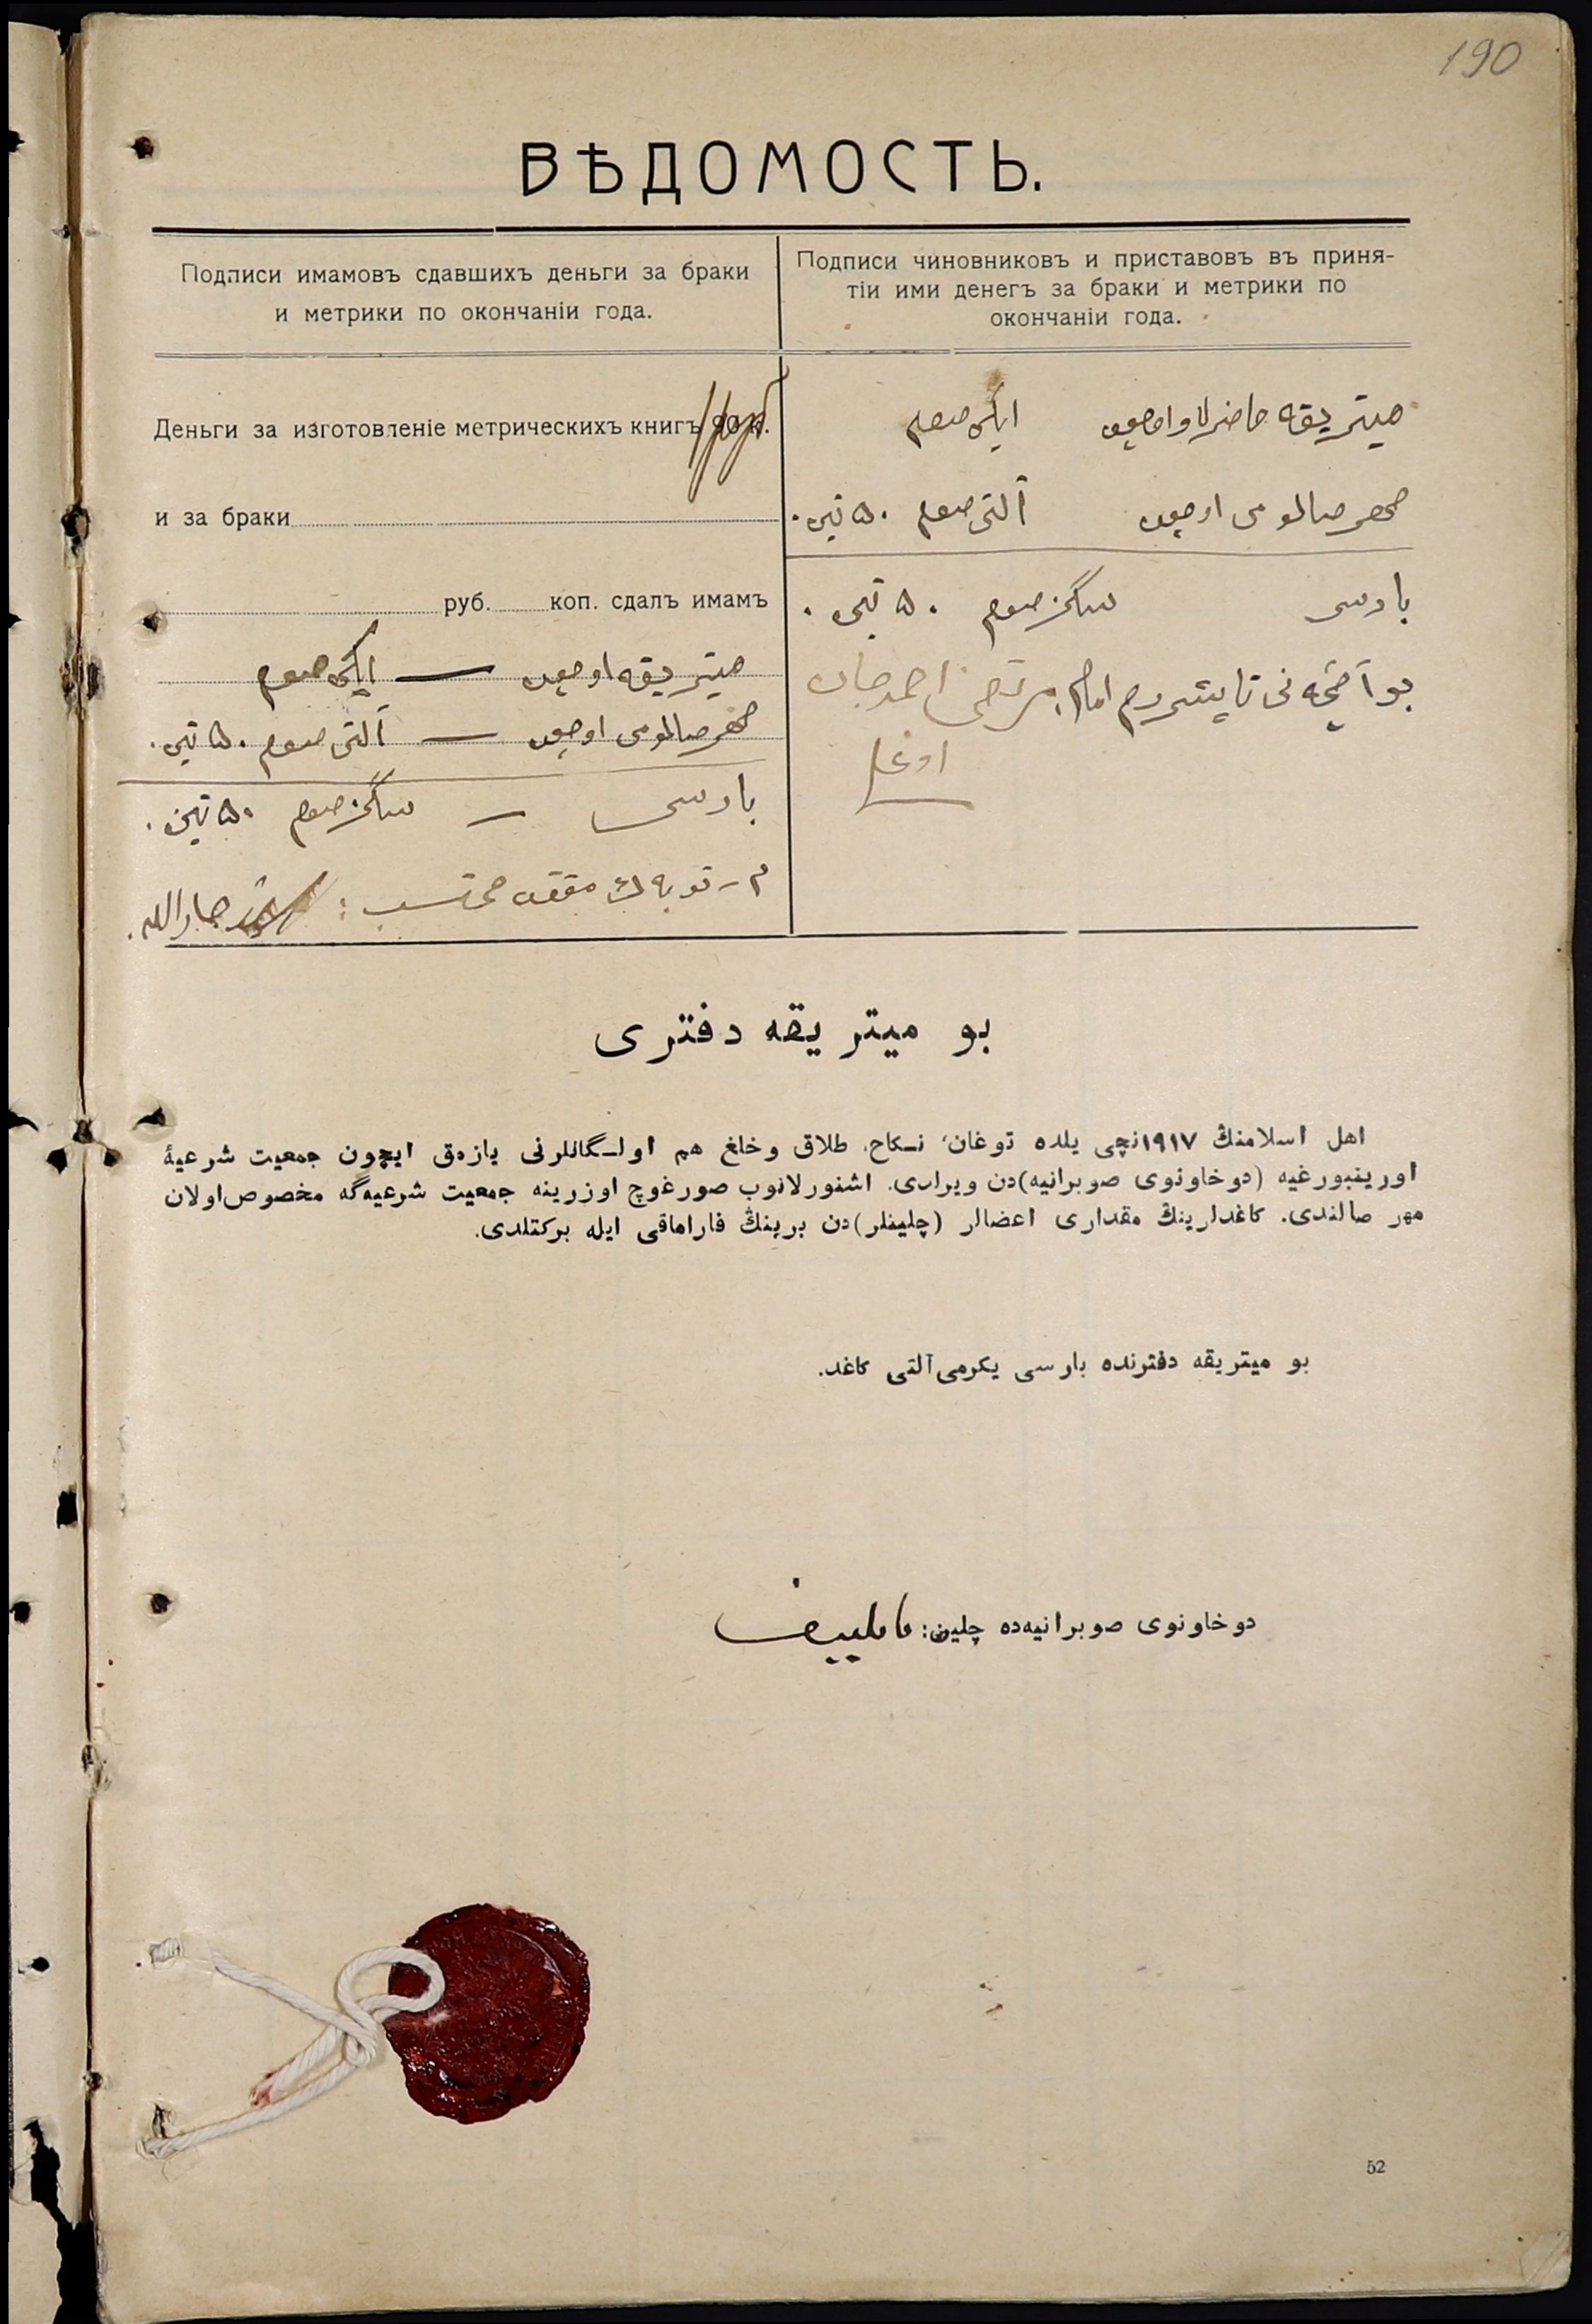 190
ВѢДОМОСТЬ.
Подписи имамовъ сдавшихъ деньги за браки
и метрики по окончаніи года.
Подписи чиновниковъ и приставовъ въ приня-
тіи ими денегъ за браки и метрики по
окончаніи года.
Деньги за изготовленіе метрическихъ книгъ 90 к.
и за браки
руб. коп. сдалъ имамъ
میتریقه اوچون — ایکی صوم
مهر صالومی اوچون — آلتی صوم ۵۰ تین.
بارسی — سکز صوم ۵۰ تین.
محتسب: جارالله.
میتریقه حاضرلاو اوچون ایکی صوم
مهر صالومی اوچون آلتی صوم ۵۰ تین.
بارسی سکز صوم ۵۰ تین.
بو آقچه نی تاپشردم امام مرتضی احمدجان
اوغلی
بو میتریقه دفتری
اهل اسلامنڭ ۱۹۱۷نچی یلده توغان، نـکاح، طلاق وخلغ هم اولـگانلرنی یازمق ایچون جمعیت شرعیهٔ
اورینبورغیه (دوخاونوی صوبرانیه)دن ویرلدی. اشنورلانوب صورغوچ اوزرینه جمعیت شرعیه‌گه مخصوص اولان
مهر صالندی. کاغدلرینڭ مقداری اعضالر (چلینلر)دن برینڭ فاراماقی ایله برکتلدی.
بو میتریقه دفترنده بارسی یکرمی آلتی کاغد.
دوخاونوی صوبرانیه‌ده چلین:
52